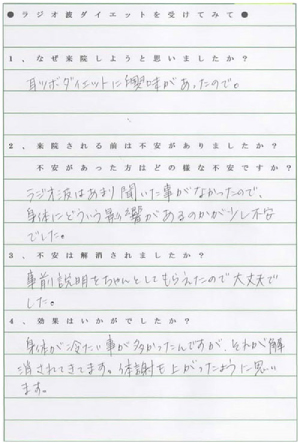 ●ラジオ波ダイエットを受けてみて●
1、なぜ来院しようと思いましたか？
耳ツボダイエットに興味があったので。
2、来院される前は不安がありましたか？
不安があった方はどの様な不安ですか？
ラジオ波はあまり聞いた事がなかったので、
身体にどういう影響があるのかが少し不安
でした。
3、不安は解消されましたか？
事前に説明をちゃんとしてもらえたので大丈夫で
した。
4、効果はいかがでしたか？
身体が冷たい事が多かったんですが、それが解
消されてきてます。代謝も上がったように思い
ます。